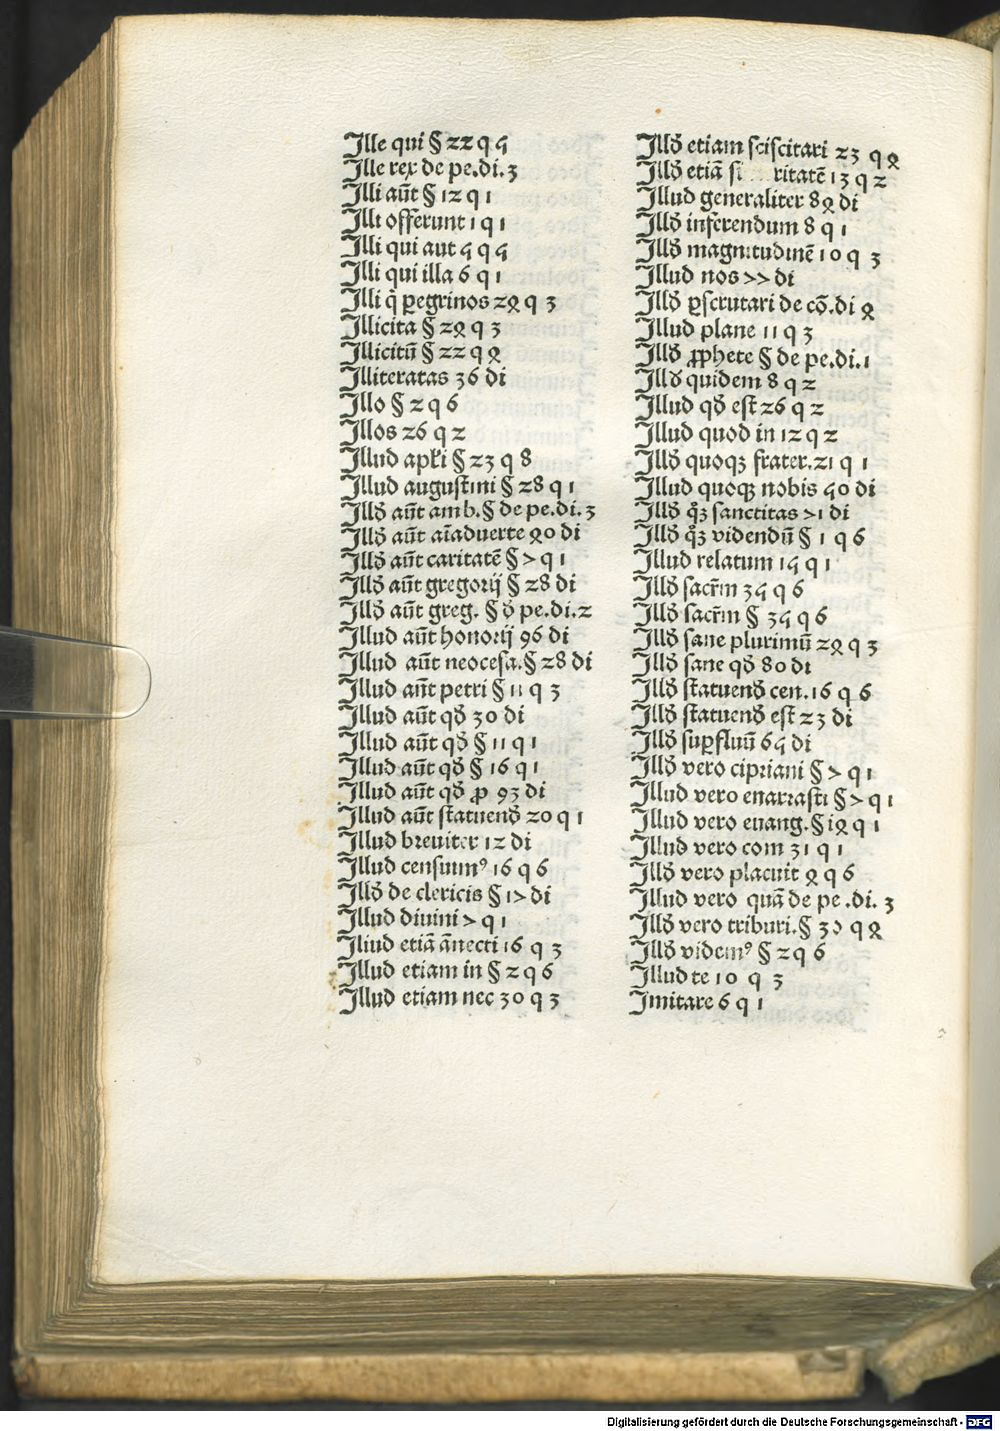 Ille qui § 22 q 5
Ille rex de pe.di.3
Illi aūt § 12 q 1
Illi offerunt 1 q 1
Illi qui aut 5 q 5
Illi qui illa 6 q 1
Illi q̄ ꝑegrinos 24 q 3
Illicita § 24 q 3
Illicitū § 22 q 4
Illiteratas 36 di
Illo § 2 q 6
Illos 26 q 2
Illud apłi § 23 q 8
Illud augustini § 28 q 1
Illđ aūt amb.§ de pe.di.3
Illđ aūt aīaduerte 40 di
Illđ aūt caritatē § 7 q 1
Illđ aūt gregorij § 28 di
Illđ aūt greg. § đ pe.di.2
Illud aūt honorij 96 di
Illud aūt neocesa.§ 28 di
Illud aūt petri § 11 q 3
Illud aūt qđ 30 di
Illud aūt qđ § 11 q 1
Illud aūt qđ § 16 q 1
Illud aūt qđ ꝓ 93 di
Illud aūt statuenđ 20 q 1
Illud breuiter 12 di
Illud censuimꝰ 16 q 6
Illđ de clericis § 17 di
Illud diuini 7 q 1
Illud etiā ānecti 16 q 3
Illud etiam in § 2 q 6
Illud etiam nec 30 q 3
Illđ etiam sciscitari 23 q 4
Illđ etiā si ritatē 13 q 2
Illud generaliter 84 di
Illđ inferendum 8 q 1
Illđ magnitudinē 10 q 3
Illud nos 77 di
Illđ ꝑscrutari de cō.di 4
Illud plane 11 q 3
Illđ ꝓphete § de pe.di.1
Illđ quidem 8 q 2
Illud qđ est 26 q 2
Illud quod in 12 q 2
Illđ quoqꝫ frater.21 q 1
Illud quoqꝫ nobis 50 di
Illđ qꝫ̊ sanctitas 71 di
Illđ qꝫ̊ videndū § 1 q 6
Illud relatum 15 q 1
Illđ sacr̄m 35 q 6
Illđ sacr̄m § 35 q 6
Illđ sane plurimū 24 q 3
Illđ sane qđ 80 di
Illđ statuenđ cen.16 q 6
Illđ statuenđ est 23 di
Illđ suꝑfluū 65 di
Illđ vero cipriani § 7 q 1
Illud vero enarrasti § 7 q 1
Illud vero euang.§ 14 q 1
Illud vero com 31 q 1
Illđ vero placuit 4 q 6
Illud vero quā de pe .di. 3
Illđ vero triburi.§ 30 q 4
Illđ videmꝰ § 2 q 6
Illud te 10 q 3
Imitare 6 q 1
Digitalisierung gefördert durch die Deutsche Forschungsgemeinschaft - DFG